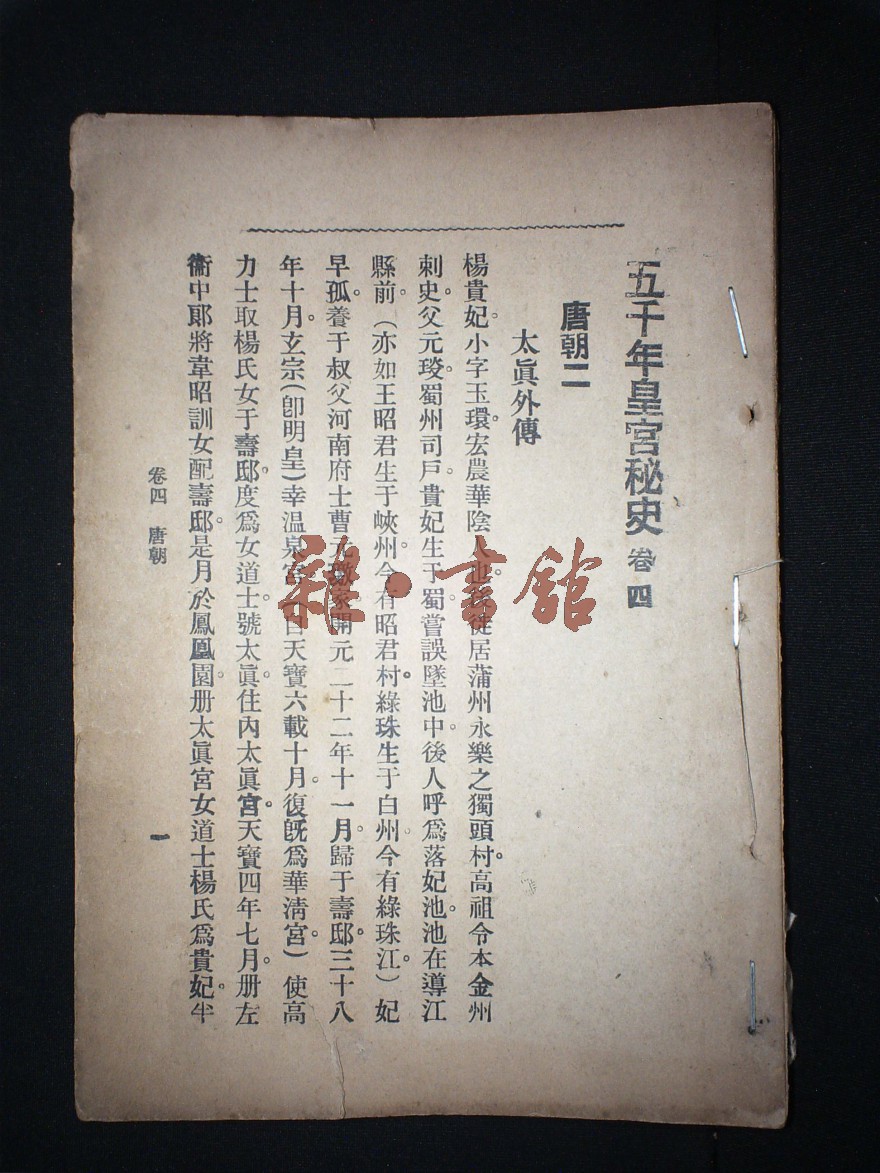 五千年皇宮秘史 卷四
唐朝二
太眞外傳
楊貴妃。小字玉環。宏農華陰人也。後從居蒲州永樂之獨頭村。高祖令本。金州
刺史。父元琰。蜀州司戶。貴妃生于蜀。嘗誤墜池中。後人呼爲落妃池。池在導江
縣前。（亦如王昭君生于峽州。今有昭君村。綠珠生于白州。今有綠珠江。）妃
早孤。養于叔父河南府士曹元璬家。開元二十二年十一月。歸于壽邸。三十八
年十月。玄宗（卽明皇）幸溫泉宮。（自天寶六載十月。復旣爲華淸宮。）使高
力士取楊氏女于壽邸。度爲女道士。號太眞。住內太眞宮。天寶四年七月。册左
衞中郞將韋昭訓女配壽邸。是月於鳳凰園。册太眞宮女道士楊氏爲貴妃。半
卷四 唐朝
一
雜·書館